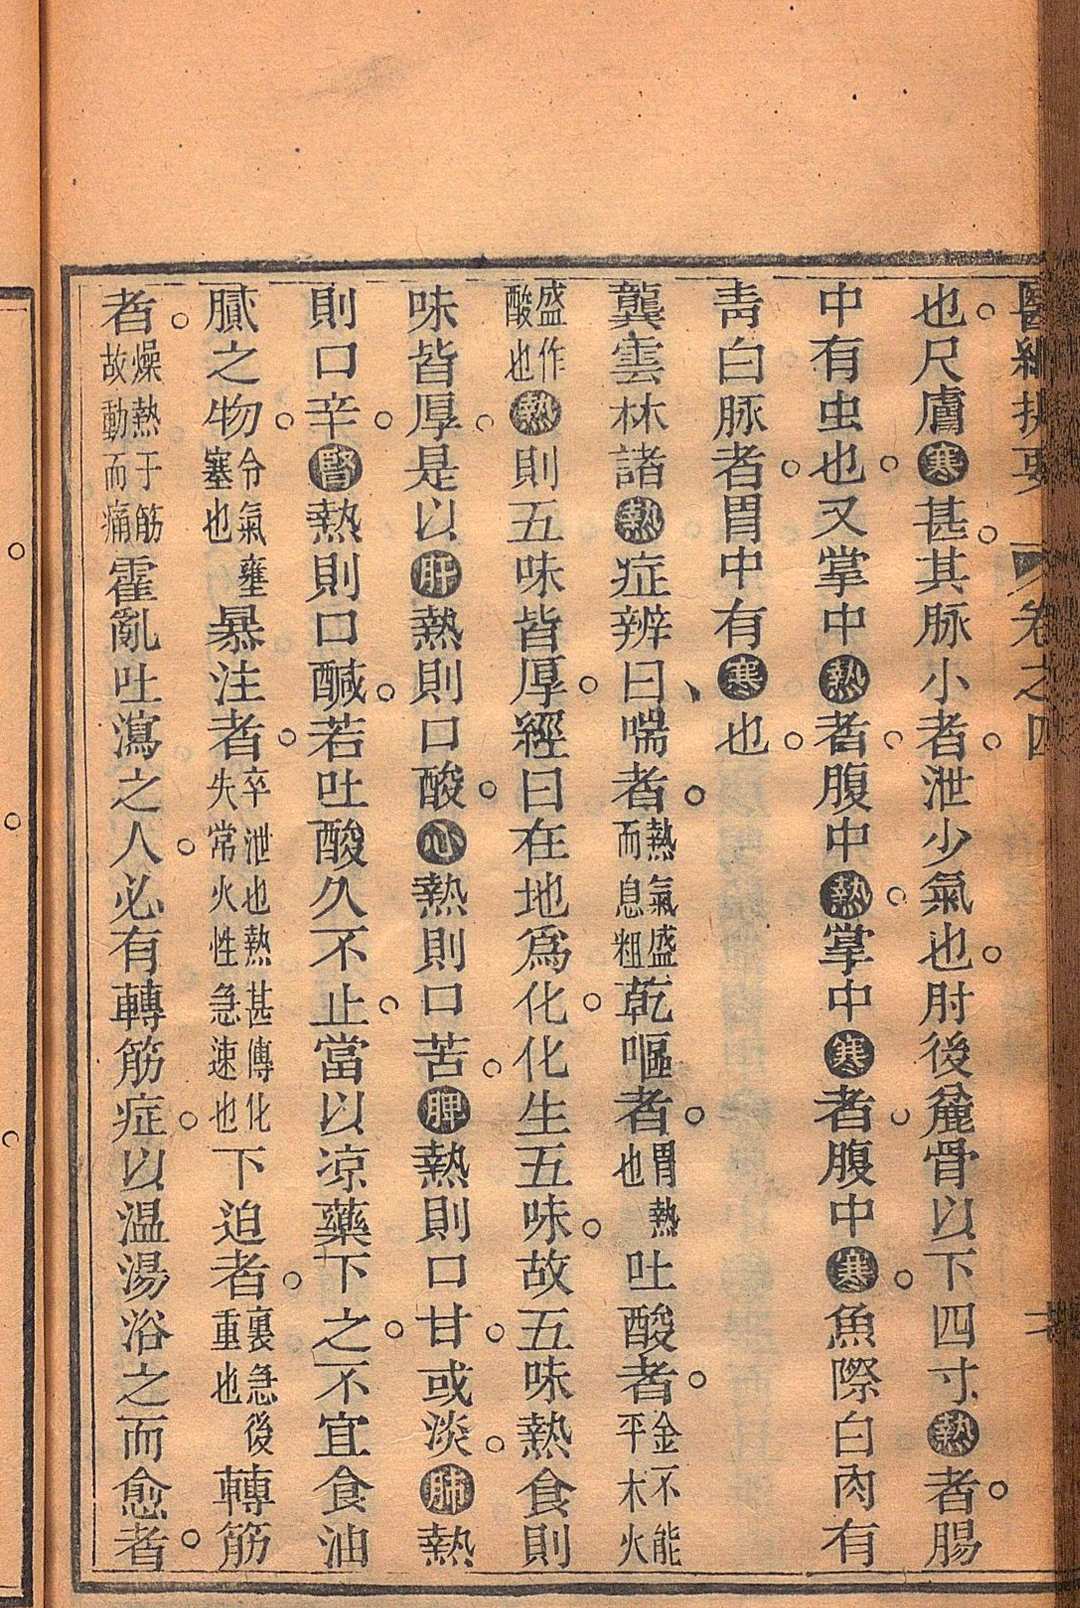 卷之四
也尺膚寒甚其脉小者泄少氣也肘後麄骨以下四寸熱者腸
中有虫也又掌中熱者腹中熱掌中寒者腹中寒魚際白肉有
靑白脉者胃中有寒也
龔雲林諸熱症辨曰喘者熱氣盛而息粗乾嘔者胃熱也吐酸者金不能平木火
盛作酸也熱則五味皆厚經曰在地爲化化生五味故五味熱食則
味皆厚是以肝熱則口酸心熱則口苦脾熱則口甘或淡肺熱
則口辛腎熱則口醎若吐酸久不止當以凉藥下之不宜食油
膩之物令氣壅塞也暴注者卒泄也熱甚傳化失常火性急速也下迫者裏急後重也轉筋
者燥熱于筋故動而痛霍亂吐瀉之人必有轉筋症以温湯浴之而愈者